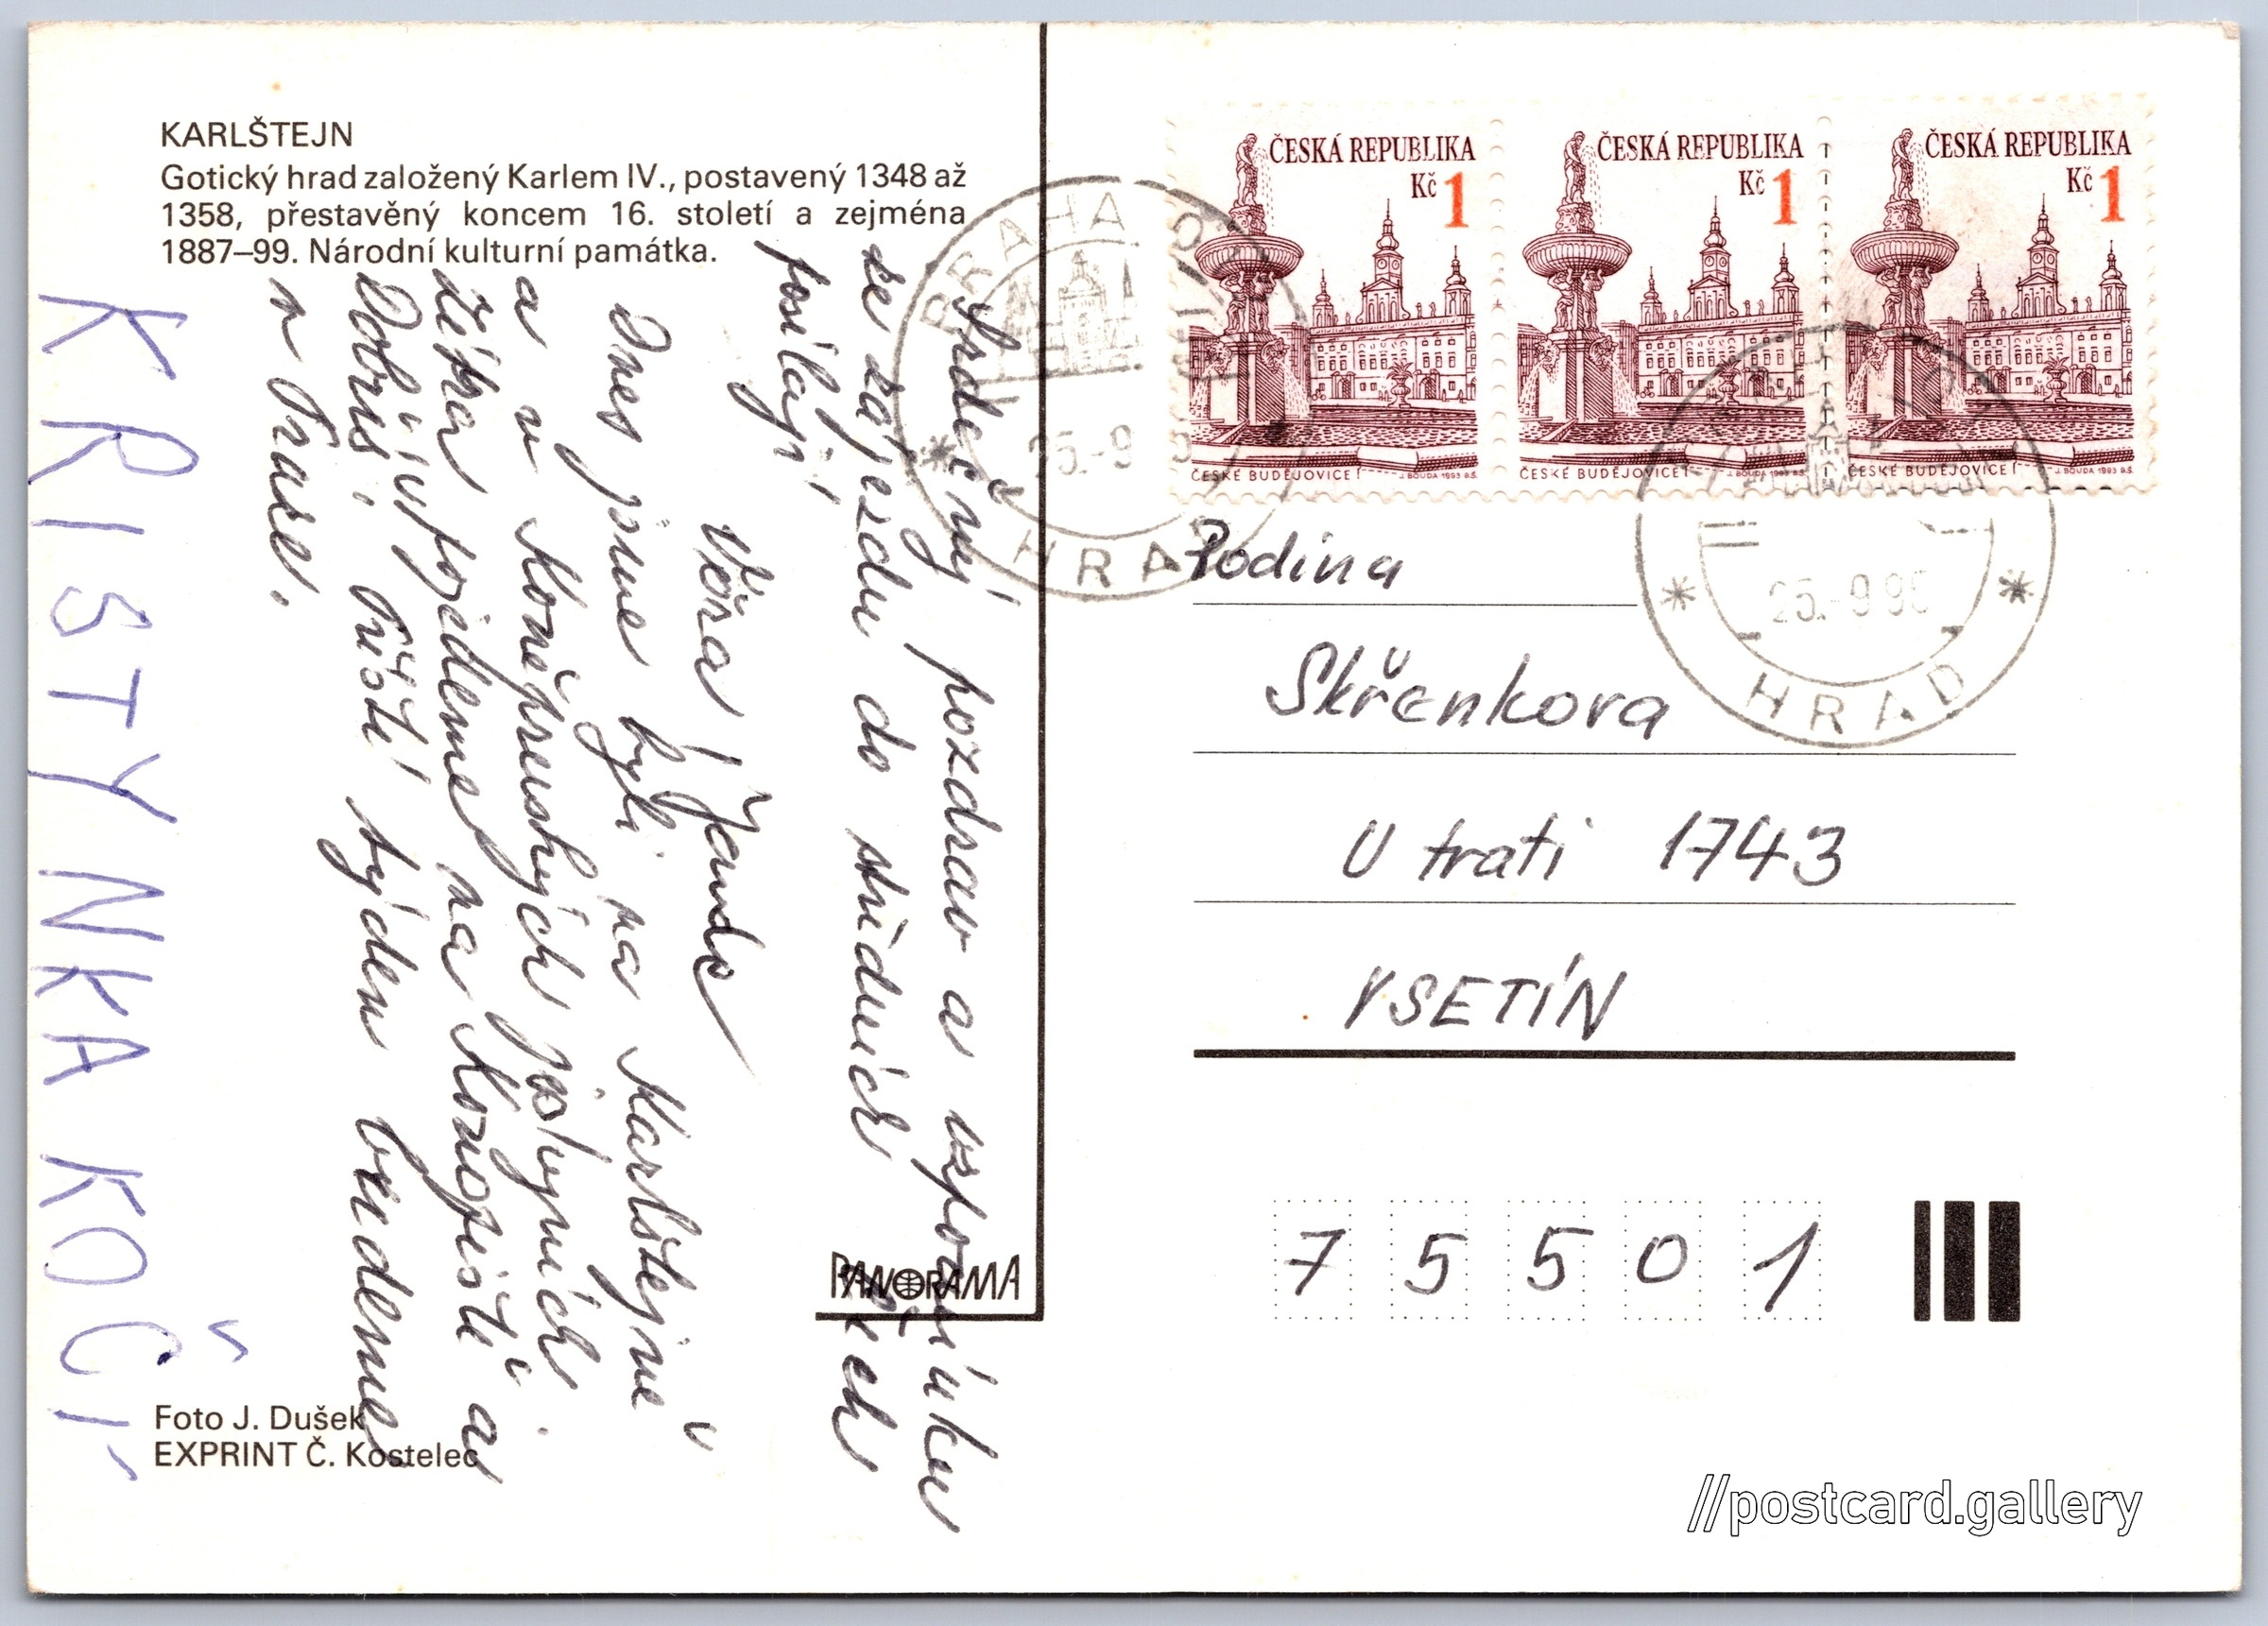 KARLŠTEJN
Gotický hrad založený Karlem IV., postavený 1348 až
1358, přestavěný koncem 16. století a zejména
1887–99. Národní kulturní památka.
Srdečný pozdrav a vzpomínku
ze zájezdu do středních Čech
posílají
Věra, Jarda
Dnes jsme byli na Karlštejně
a v Koněpruských jeskyních.
Zítra pojedeme na Konopiště a
Dobříš. Příští týden budeme
v Praze.
KRISTÝNKA KOČÍ
Foto J. Dušek
EXPRINT Č. Kostelec
PANORAMA
ČESKÁ REPUBLIKA
Kč 1
ČESKÉ BUDĚJOVICE
J. BOUDA 1993 B.Š.
ČESKÁ REPUBLIKA
Kč 1
ČESKÉ BUDĚJOVICE
J. BOUDA 1993 B.Š.
ČESKÁ REPUBLIKA
Kč 1
ČESKÉ BUDĚJOVICE
J. BOUDA 1993 B.Š.
PRAHA
25.-9
HRAD
25.-9
HRAD
Rodina
Skřenkova
U trati 1743
VSETÍN
75501
//postcard.gallery